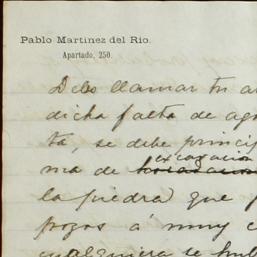 Pablo Martinez del Rio.
Apartado, 250.
Debo llamar tu a
dicha falta de ag
ta, se debe princip
excavacion
ma de
la piedra que
pozos á muy c
cualquiera se hub